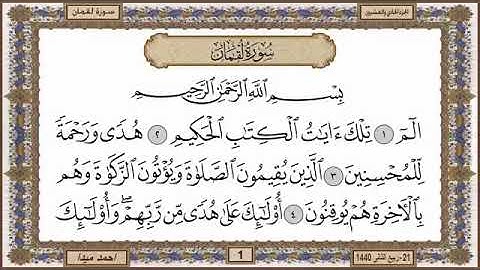 الجزء الحادي والعشرون
سورة لقمان
سُورَةُ لُقْمَانَ
بِسْمِ ٱللَّهِ ٱلرَّحْمَٰنِ ٱلرَّحِيمِ
الٓمٓ ١ تِلْكَ ءَايَٰتُ ٱلْكِتَٰبِ ٱلْحَكِيمِ ٢ هُدًى وَرَحْمَةً
لِّلْمُحْسِنِينَ ٣ ٱلَّذِينَ يُقِيمُونَ ٱلصَّلَوٰةَ وَيُؤْتُونَ ٱلزَّكَوٰةَ وَهُم
بِٱلْءَاخِرَةِ هُمْ يُوقِنُونَ ٤ أُو۟لَٰٓئِكَ عَلَىٰ هُدًى مِّن رَّبِّهِمْ ۖ وَأُو۟لَٰٓئِكَ
21-ربيع الثاني 1440
1
احمد ميد